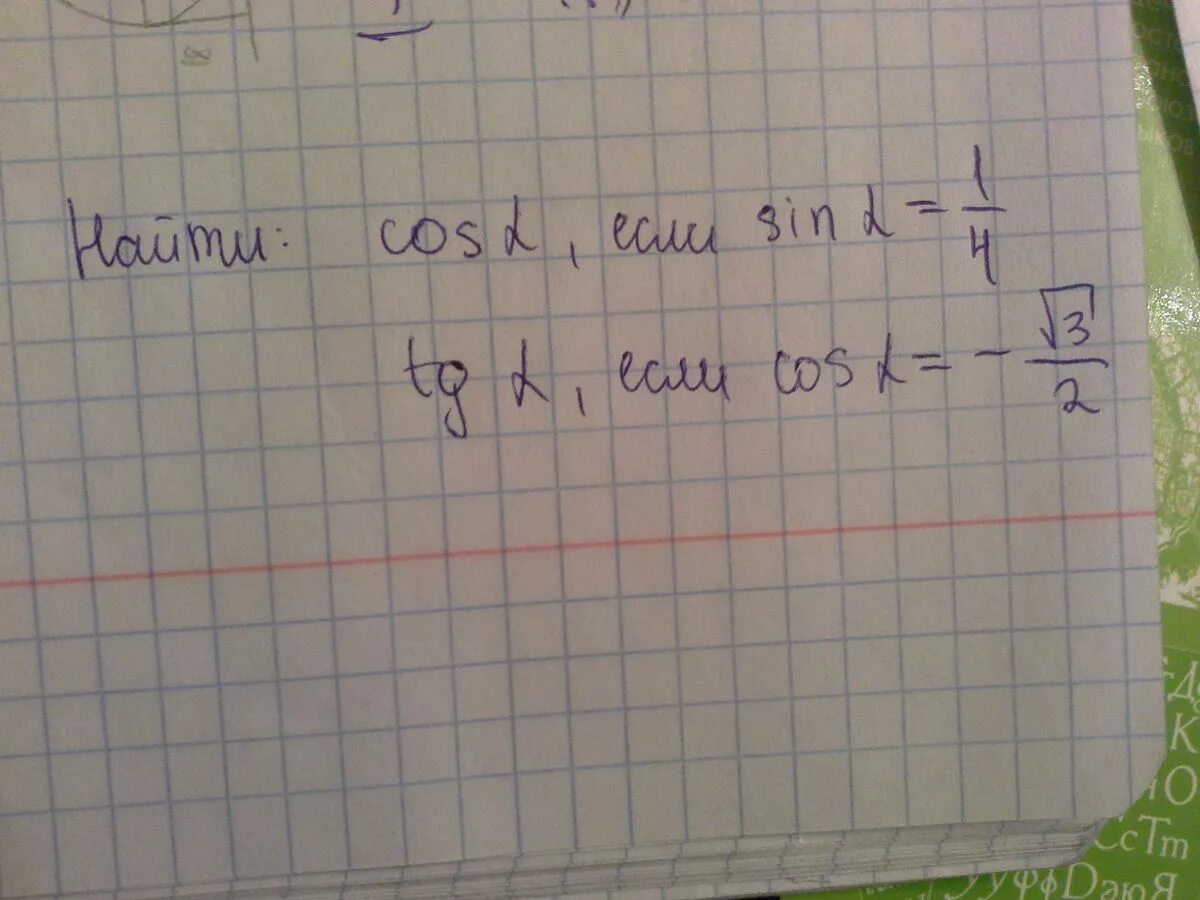 Найти: cos α, если sin α = 1/4
tg α, если cos α = - √3/2
Д
К
О
СсТт
УуФфDаюЯ